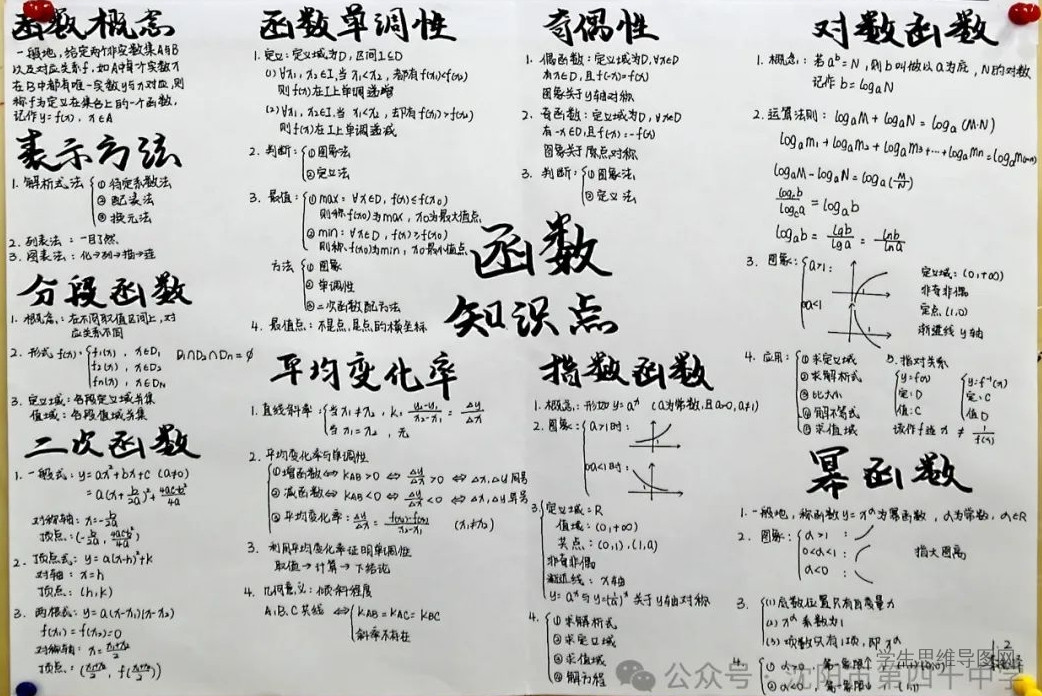 函数概念
一般地,给定两个非空实数集A与B
以及对应关系f,如A中每个实数x
在B中都有唯一实数y与x对应,则
称f为定义在集合上的一个函数,
记作y=f(x),x∈A
表示方法
1. 解析式法 ① 待定系数法
② 配凑法
③ 换元法
2. 列表法:一目了然
3. 图表法:化→列→描→连
分段函数
1. 概念:在不同取值区间上,对
应关系不同
2. 形式 f(x)= f₁(x),x∈D₁ D₁∩D₂∩Dn=∅
f₂(x),x∈D₂
fn(x),x∈Dn
3. 定义域:各段定义域并集
值域:各段值域并集
二次函数
1. 一般式:y=ax²+bx+c (a≠0)
=a(x+b/2a)²+(4ac-b²)/4a
对称轴:x=-b/2a
顶点:(-b/2a,(4ac-b²)/4a)
2. 顶点式:y=a(x-h)²+k
对轴:x=h
顶点:(h,k)
3. 两根式:y=a(x-x₁)(x-x₂)
f(x₁)=f(x₂)=0
对称轴:x=(x₁+x₂)/2
顶点:((x₁+x₂)/2,f((x₁+x₂)/2))
函数单调性
1. 定义:定义域为D,区间I⊆D
(1) ∀x₁,x₂∈I,当x₁<x₂,都有f(x₁)<f(x₂)
则f(x)在I上单调递增
(2) ∀x₁,x₂∈I,当x₁<x₂,却有f(x₁)>f(x₂)
则f(x)在I上单调递减
2. 判断:① 图象法
② 定义法
3. 最值:① max:∀x∈D,f(x)≤f(x₀)
则称f(x₀)为max,x₀为最大值点
② min:∀x∈D,f(x)≥f(x₀)
则称f(x₀)为min,x₀最小值点
方法 ① 图象
② 单调性
③ 二次函数配方法
4. 最值点:不是点,是点的横坐标
函数
知识点
平均变化率
1. 直线斜率:当x₁≠x₂,k=(y₂-y₁)/(x₂-x₁)=Δy/Δx
当x₁=x₂,无
2. 平均变化率与单调性
① 增函数⇔kAB>0⇔Δy/Δx>0⇔Δx,Δy同号
② 减函数⇔kAB<0⇔Δy/Δx<0⇔Δx,Δy异号
③ 平均变化率:Δy/Δx=(f(x₂)-f(x₁))/(x₂-x₁) (x₁≠x₂)
3. 利用平均变化率证明单调性
取值→计算→下结论
4. 几何意义:倾斜程度
A,B,C共线⇔kAB=kAC=kBC
斜率不存在
奇偶性
1. 偶函数:定义域为D,∀x∈D
有-x∈D,且f(-x)=f(x)
图象关于y轴对称
2. 奇函数:定义域为D,∀x∈D
有-x∈D,且f(-x)=-f(x)
图象关于原点对称
3. 判断:① 图象法
② 定义法
指数函数
1. 概念:形如y=aˣ (a为常数,且a>0,a≠1)
2. 图象:a>1时:
0<a<1时:
3. 定义域=R
值域:(0,+∞)
共点:(0,1),(1,a)
非奇非偶
渐近线:x轴
y=aˣ与y=(1/a)ˣ关于y轴对称
4. ① 求解析式
② 求定义域
③ 求值域
④ 解方程
对数函数
1. 概念:若aᵇ=N,则b叫做以a为底,N的对数
记作b=logaN
2. 运算法则:logaM+logaN=loga(M·N)
logam₁+logam₂+logam₃+…+logamn=loga
logaM-logaN=loga(M/N)
logcb/logca=logab
logab=lgb/lga=lnb/lna
3. 图象:a>1: 定义域:(0,+∞)
非奇非偶
0<a<1 定点(1,0)
渐近线y轴
4. 应用:① 求定义域
② 求解析式
③ 比大小
④ 解不等式
⑤ 求值域
5. 指对关系
y=f(x) y=f⁻¹(x)
定:D 定:C
值:C 值D
读作f逆x≠1/f(x)
幂函数
1. 一般地,称函数y=xᵅ为幂函数,α为常数,α∈R
2. 图象:α>1:
0<α<1: 指大图高
α<0:
3. (1) 底数位置只有自变量x
(2) xᵅ系数为1
(3) 项数只有1项,即xᵅ
4. ① α>0,第一象限↑
② α<0,第一象限↓ (1,1)
学生思维导图网
公众号:沈阳市第四十中学